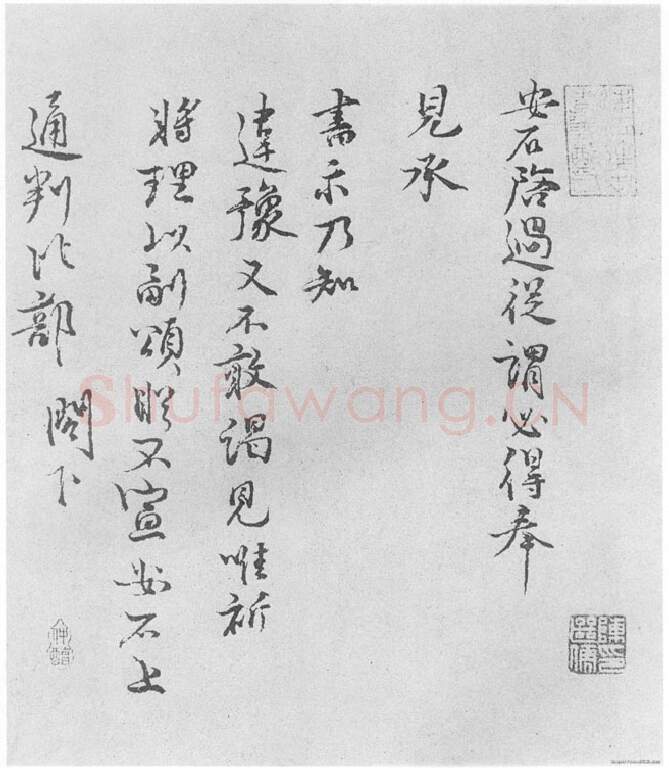 安石啓過從謂必得奉
見承
書示乃知
違豫又不敢謁見唯祈
將理以副頌眂不宣安石上
通判比部 閣下
Shufawang.CN